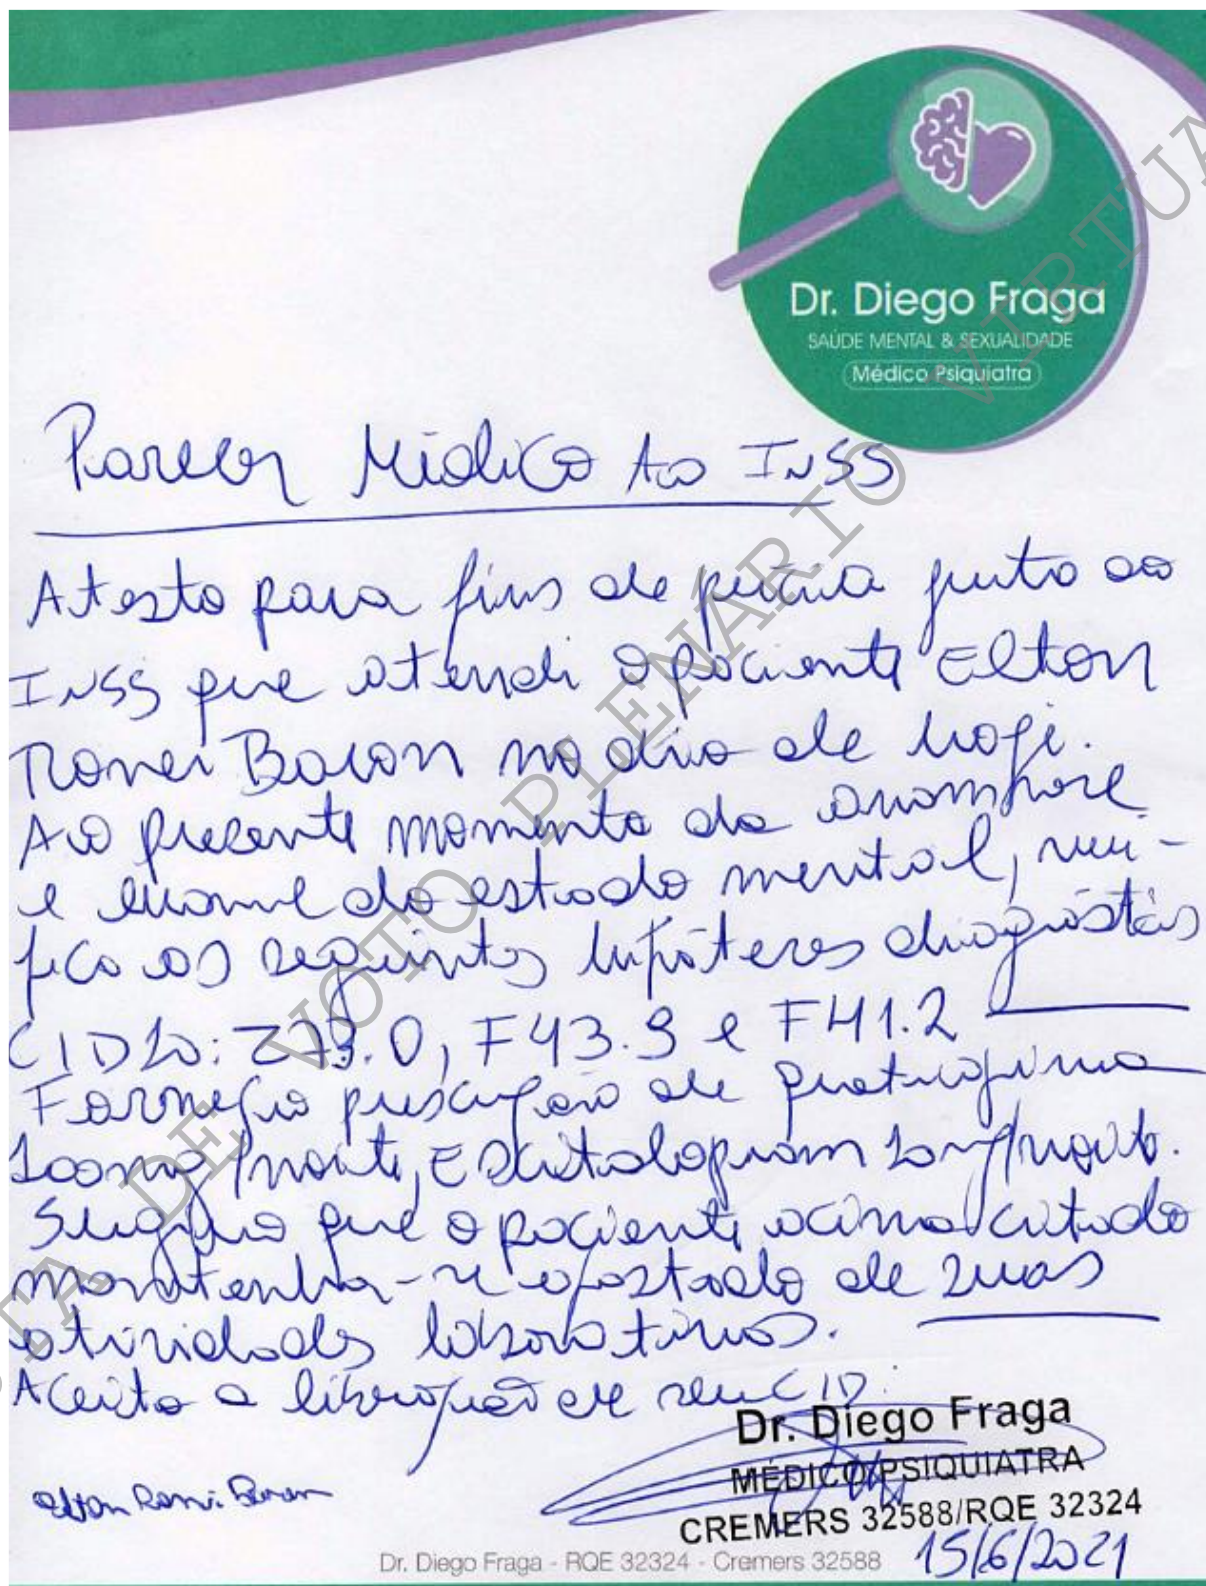 Dr. Diego Fraga
SAÚDE MENTAL & SEXUALIDADE
Médico Psiquiatra
Parecer Médico Ao INSS
Atesto para fins de perícia junto ao
INSS que atendi o paciente Elton
Ronei Baron no dia de hoje.
Ao presente momento da anamnese
e exame do estado mental, veri-
fico as seguintes hipóteses diagnósticas
CID10: Z73.0, F43.9 e F41.2
Forneço prescrição de quetiapina
100mg/noite, Escitalopram 10mg/noite.
Sugiro que o paciente acima citado
mantenha-se afastado de suas
atividades laborativas.
Aceito a liberação de meu CID.
Elton Ronei Baron
Dr. Diego Fraga
MÉDICO PSIQUIATRA
CREMERS 32588/RQE 32324
15/6/2021
Dr. Diego Fraga - RQE 32324 - Cremers 32588
VOTO PLENARIO VIRTUA
TA DE